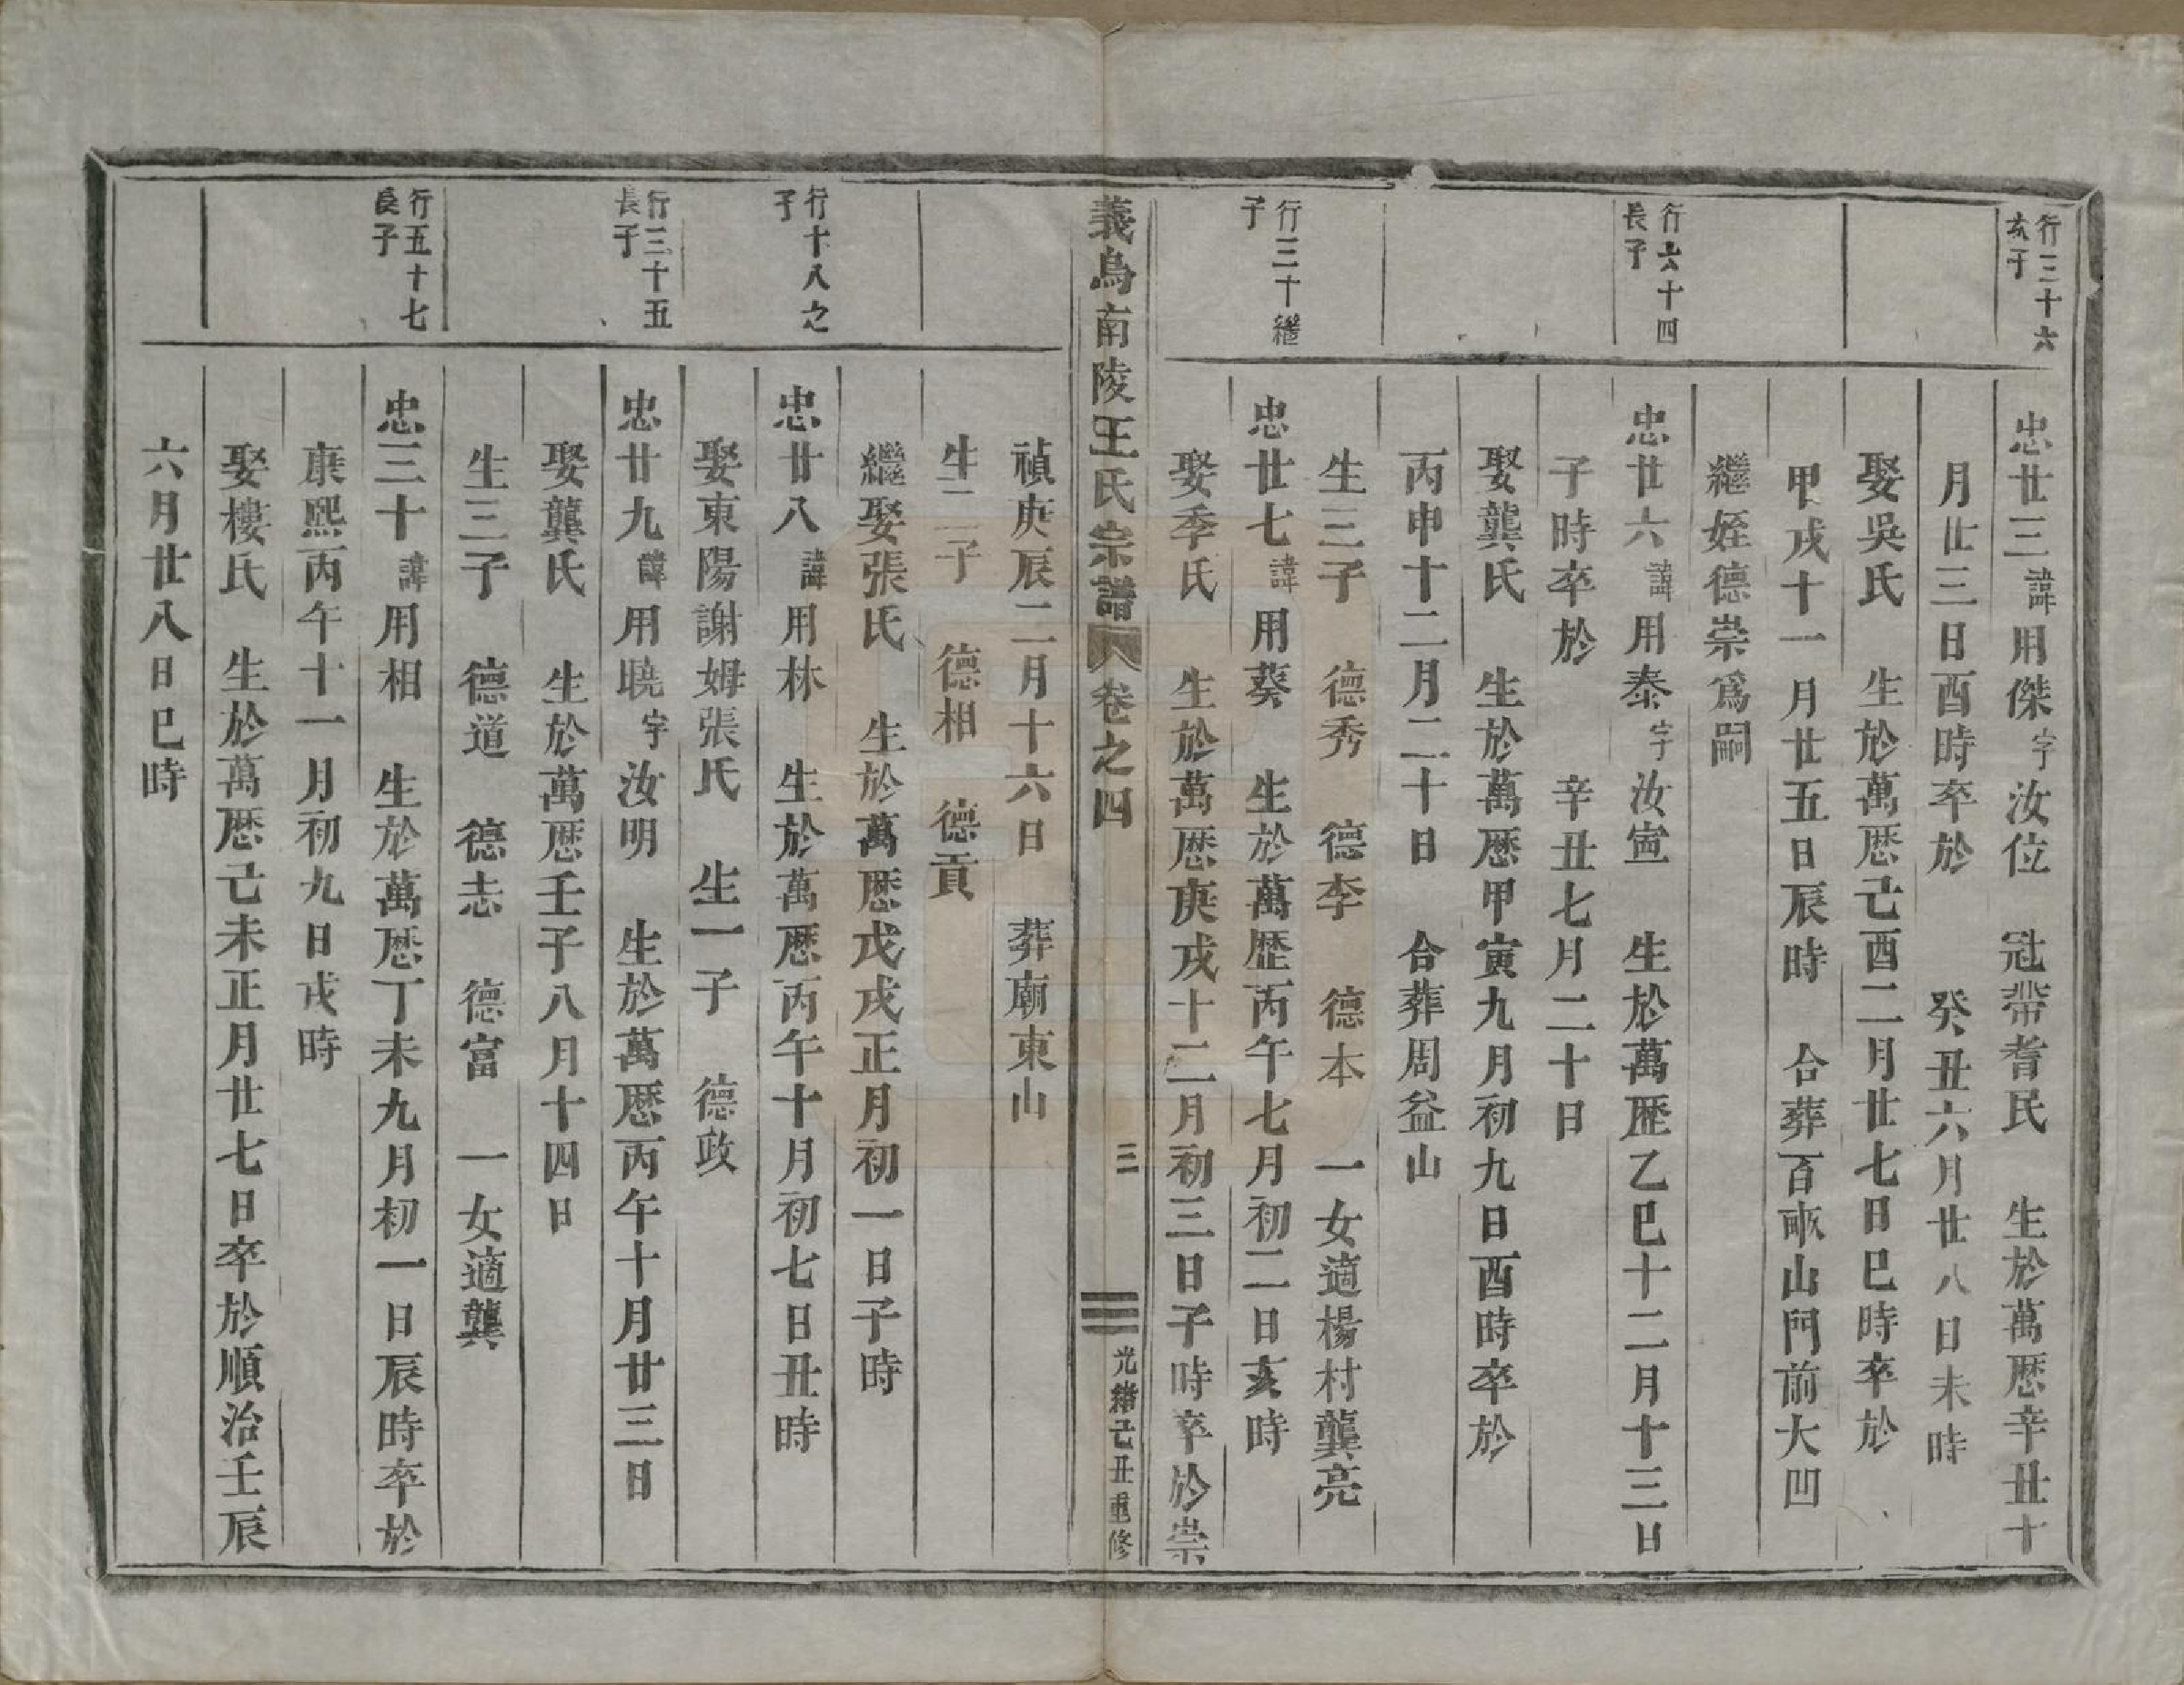 行三十六
次子
忠廿三諱用傑字汝位 冠帶耆民 生於萬厯辛丑十
月廿三日酉時卒於 癸丑六月廿八日未時
娶吳氏 生於萬厯己酉二月廿七日巳時卒於
甲戌十一月廿五日辰時 合葬百畝山門前大凹
繼姪德崇爲嗣
行六十四
長子
忠廿六諱用泰字汝寅 生於萬歷乙巳十二月十三日
子時卒於 辛丑七月二十日
娶龔氏 生於萬歷甲寅九月初九日酉時卒於
丙申十二月二十日 合葬周益山
生三子 德秀 德李 德本 一女適楊村龔亮
行三十繼
子
忠廿七諱用葵 生於萬歷丙午七月初二日亥時
娶季氏 生於萬厯庚戌十二月初三日子時卒於崇
義烏南陵王氏宗譜 卷之四 三 光緒己丑重修
禎庚辰二月十六日 葬廟東山
生二子 德相 德貢
繼娶張氏 生於萬厯戊戌正月初一日子時
行十八之
子
忠廿八諱用林 生於萬厯丙午十月初七日丑時
娶東陽謝姆張氏 生一子 德政
行三十五
長子
忠廿九諱用曉字汝明 生於萬厯丙午十月廿三日
娶龔氏 生於萬厯壬子八月十四日
生三子 德道 德志 德富 一女適龔
行五十七
長子
忠三十諱用相 生於萬厯丁未九月初一日辰時卒於
康熙丙午十一月初九日戌時
娶樓氏 生於萬厯己未正月廿七日卒於順治壬辰
六月廿八日巳時